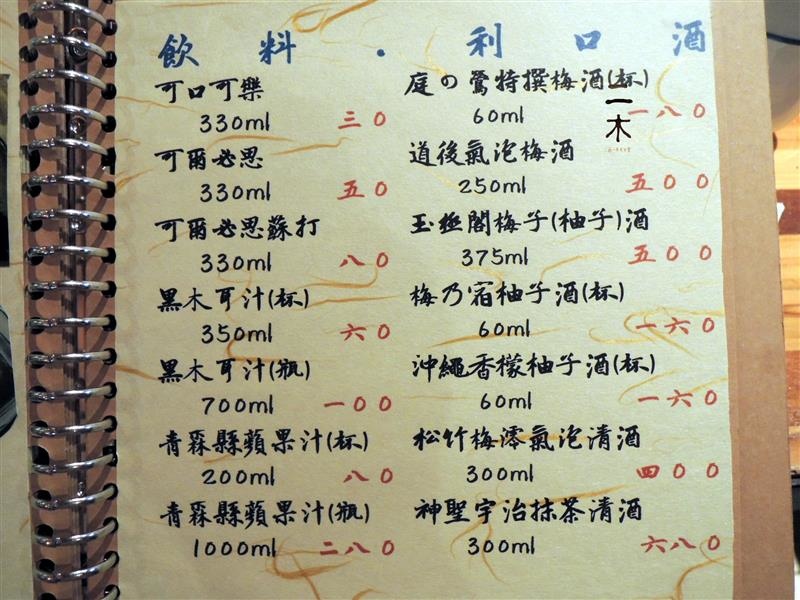 飲料・利口酒
可口可樂
330ml 三0
可爾必思
330ml 五0
可爾必思蘇打
330ml 八0
黑木耳汁(杯)
350ml 六0
黑木耳汁(瓶)
700ml 一00
青森縣蘋果汁(杯)
200ml 八0
青森縣蘋果汁(瓶)
1000ml 二八0
庭の鶯特撰梅酒(杯)
60ml 一八0
二木
道後氣泡梅酒
250ml 五00
玉極閣梅子(柚子)酒
375ml 五00
梅乃宿柚子酒(杯)
60ml 一六0
沖繩香檬柚子酒(杯)
60ml 一六0
松竹梅澪氣泡清酒
300ml 四00
神聖宇治抹茶清酒
300ml 六八0